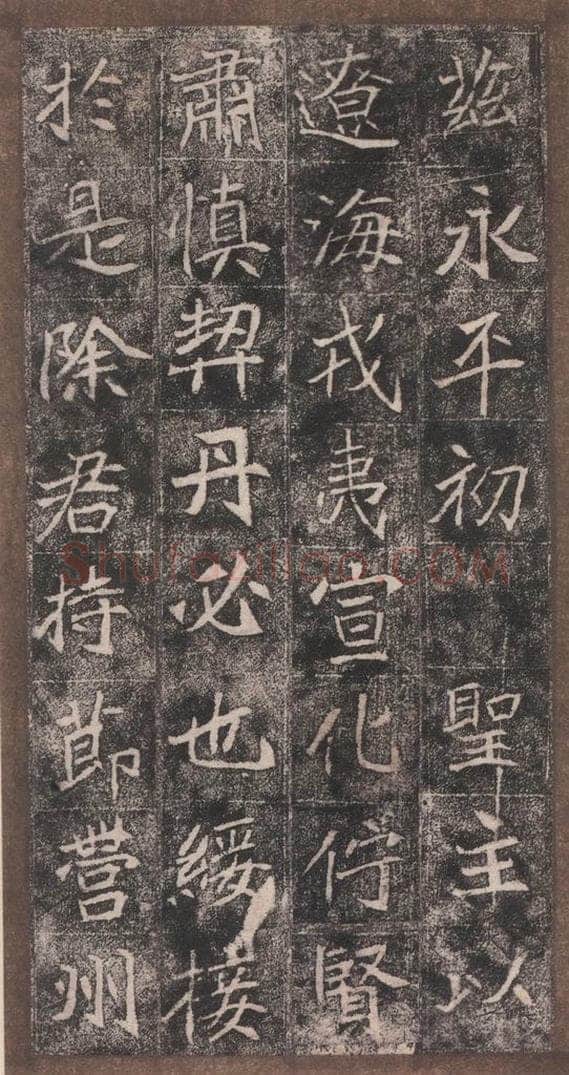 兹永平初聖主以
遼海戎夷宣化佇賢
肅慎契丹必也綏接
於是除君持節營州
Shufaziliao.COM